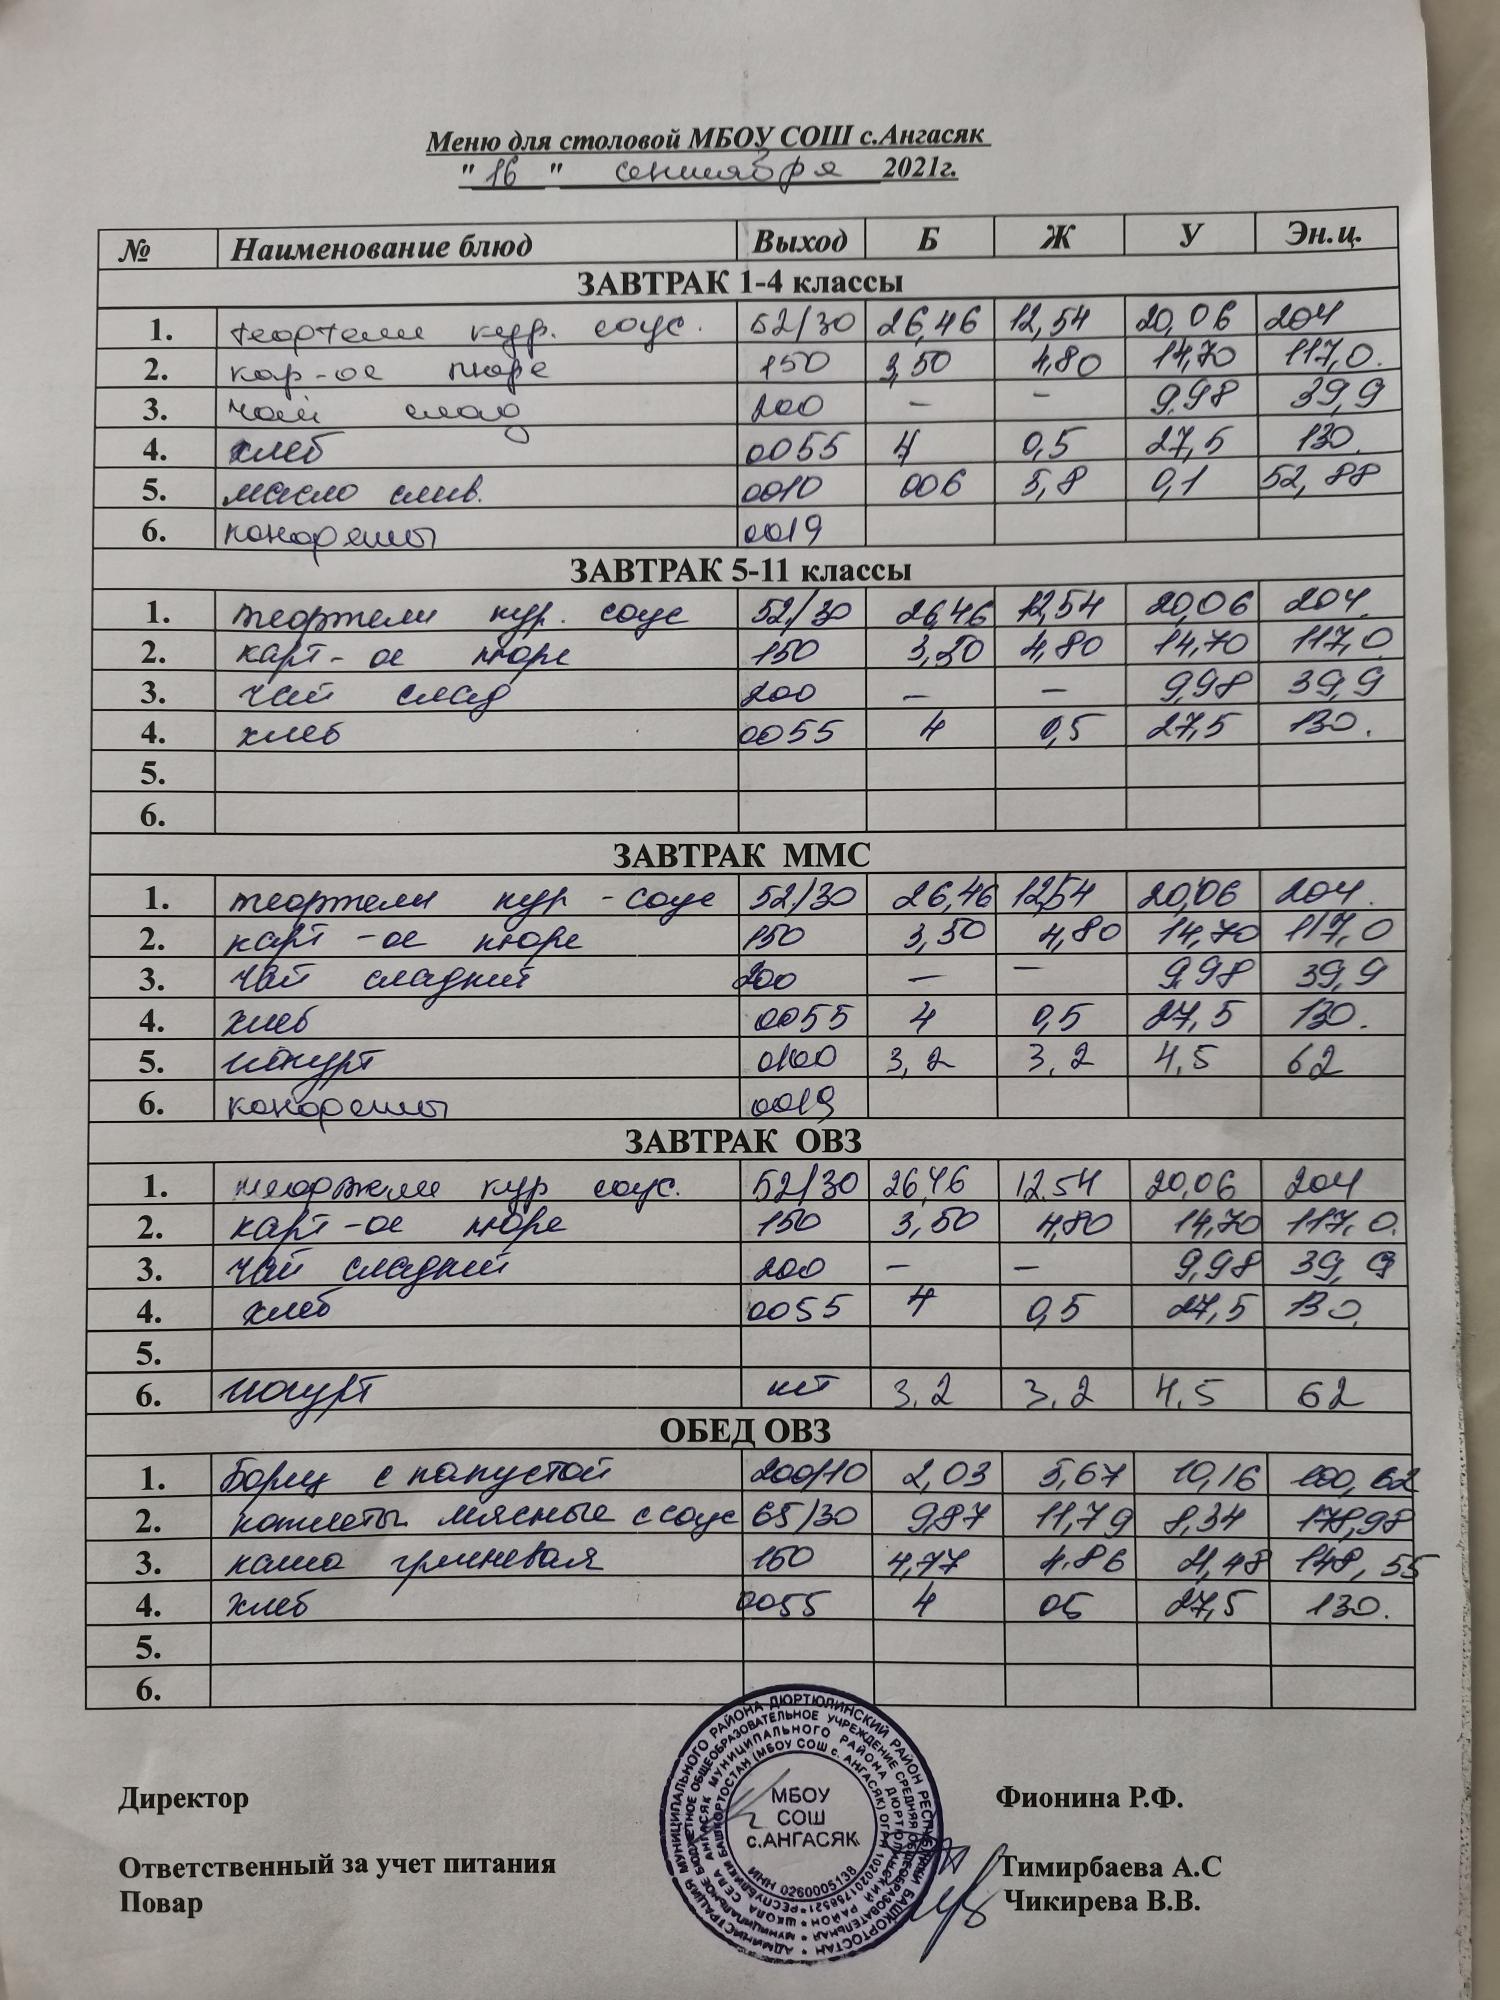 Меню для столовой МБОУ СОШ с.Ангасяк
"16" сентября 2021г.
№ Наименование блюд Выход Б Ж У Эн.ц.
ЗАВТРАК 1-4 классы
1. тефтели кур. соус. 52/30 26,46 12,54 20,06 204
2. кар-ое пюре 150 3,50 4,80 14,70 117,0.
3. чай слад 200 – – 9,98 39,9
4. хлеб 0055 4 0,5 27,5 130.
5. масло слив. 0010 006 5,8 0,1 52,88
6. 0019
ЗАВТРАК 5-11 классы
1. тефтели кур. соус 52/30 26,46 12,54 20,06 204.
2. карт-ое пюре 150 3,50 4,80 14,70 117,0
3. чай слад 200 – – 9,98 39,9
4. хлеб 0055 4 0,5 27,5 130.
5.
6.
ЗАВТРАК ММС
1. тефтели кур - соус 52/30 26,46 12,54 20,06 204.
2. карт-ое пюре 150 3,50 4,80 14,70 117,0
3. чай сладкий 200 – – 9,98 39,9
4. хлеб 0055 4 0,5 27,5 130.
5. йогурт 0100 3,2 3,2 4,5 62
6. 0019
ЗАВТРАК ОВЗ
1. тефтели кур соус. 52/30 26,46 12.54 20,06 204
2. карт-ое пюре 150 3,50 4,80 14,70 117,0.
3. чай сладкий 200 – – 9,98 39,9
4. хлеб 0055 4 0,5 27,5 130.
5.
6. йогурт шт 3,2 3,2 4,5 62
ОБЕД ОВЗ
1. Борщ с капустой 200/10 2,03 5,67 10,16 100,62
2. котлеты мясные с соус 65/30 9,87 11,79 8,34 178,98
3. каша гречневая 150 4,77 4.86 21,48 148,55
4. хлеб 0055 4 05 27,5 130.
5.
6.
Директор Фионина Р.Ф.
МБОУ
СОШ
с.АНГАСЯК
ИНН 0260005138
Ответственный за учет питания Тимирбаева А.С
Повар Чикирева В.В.